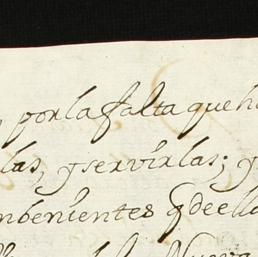 por la falta que h
las, y servirlas; y
mbenientes q deell
Nueva